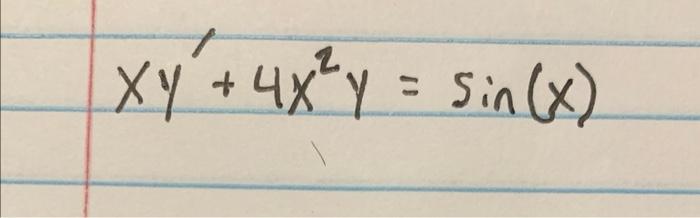 xy' + 4x²y = sin(x)